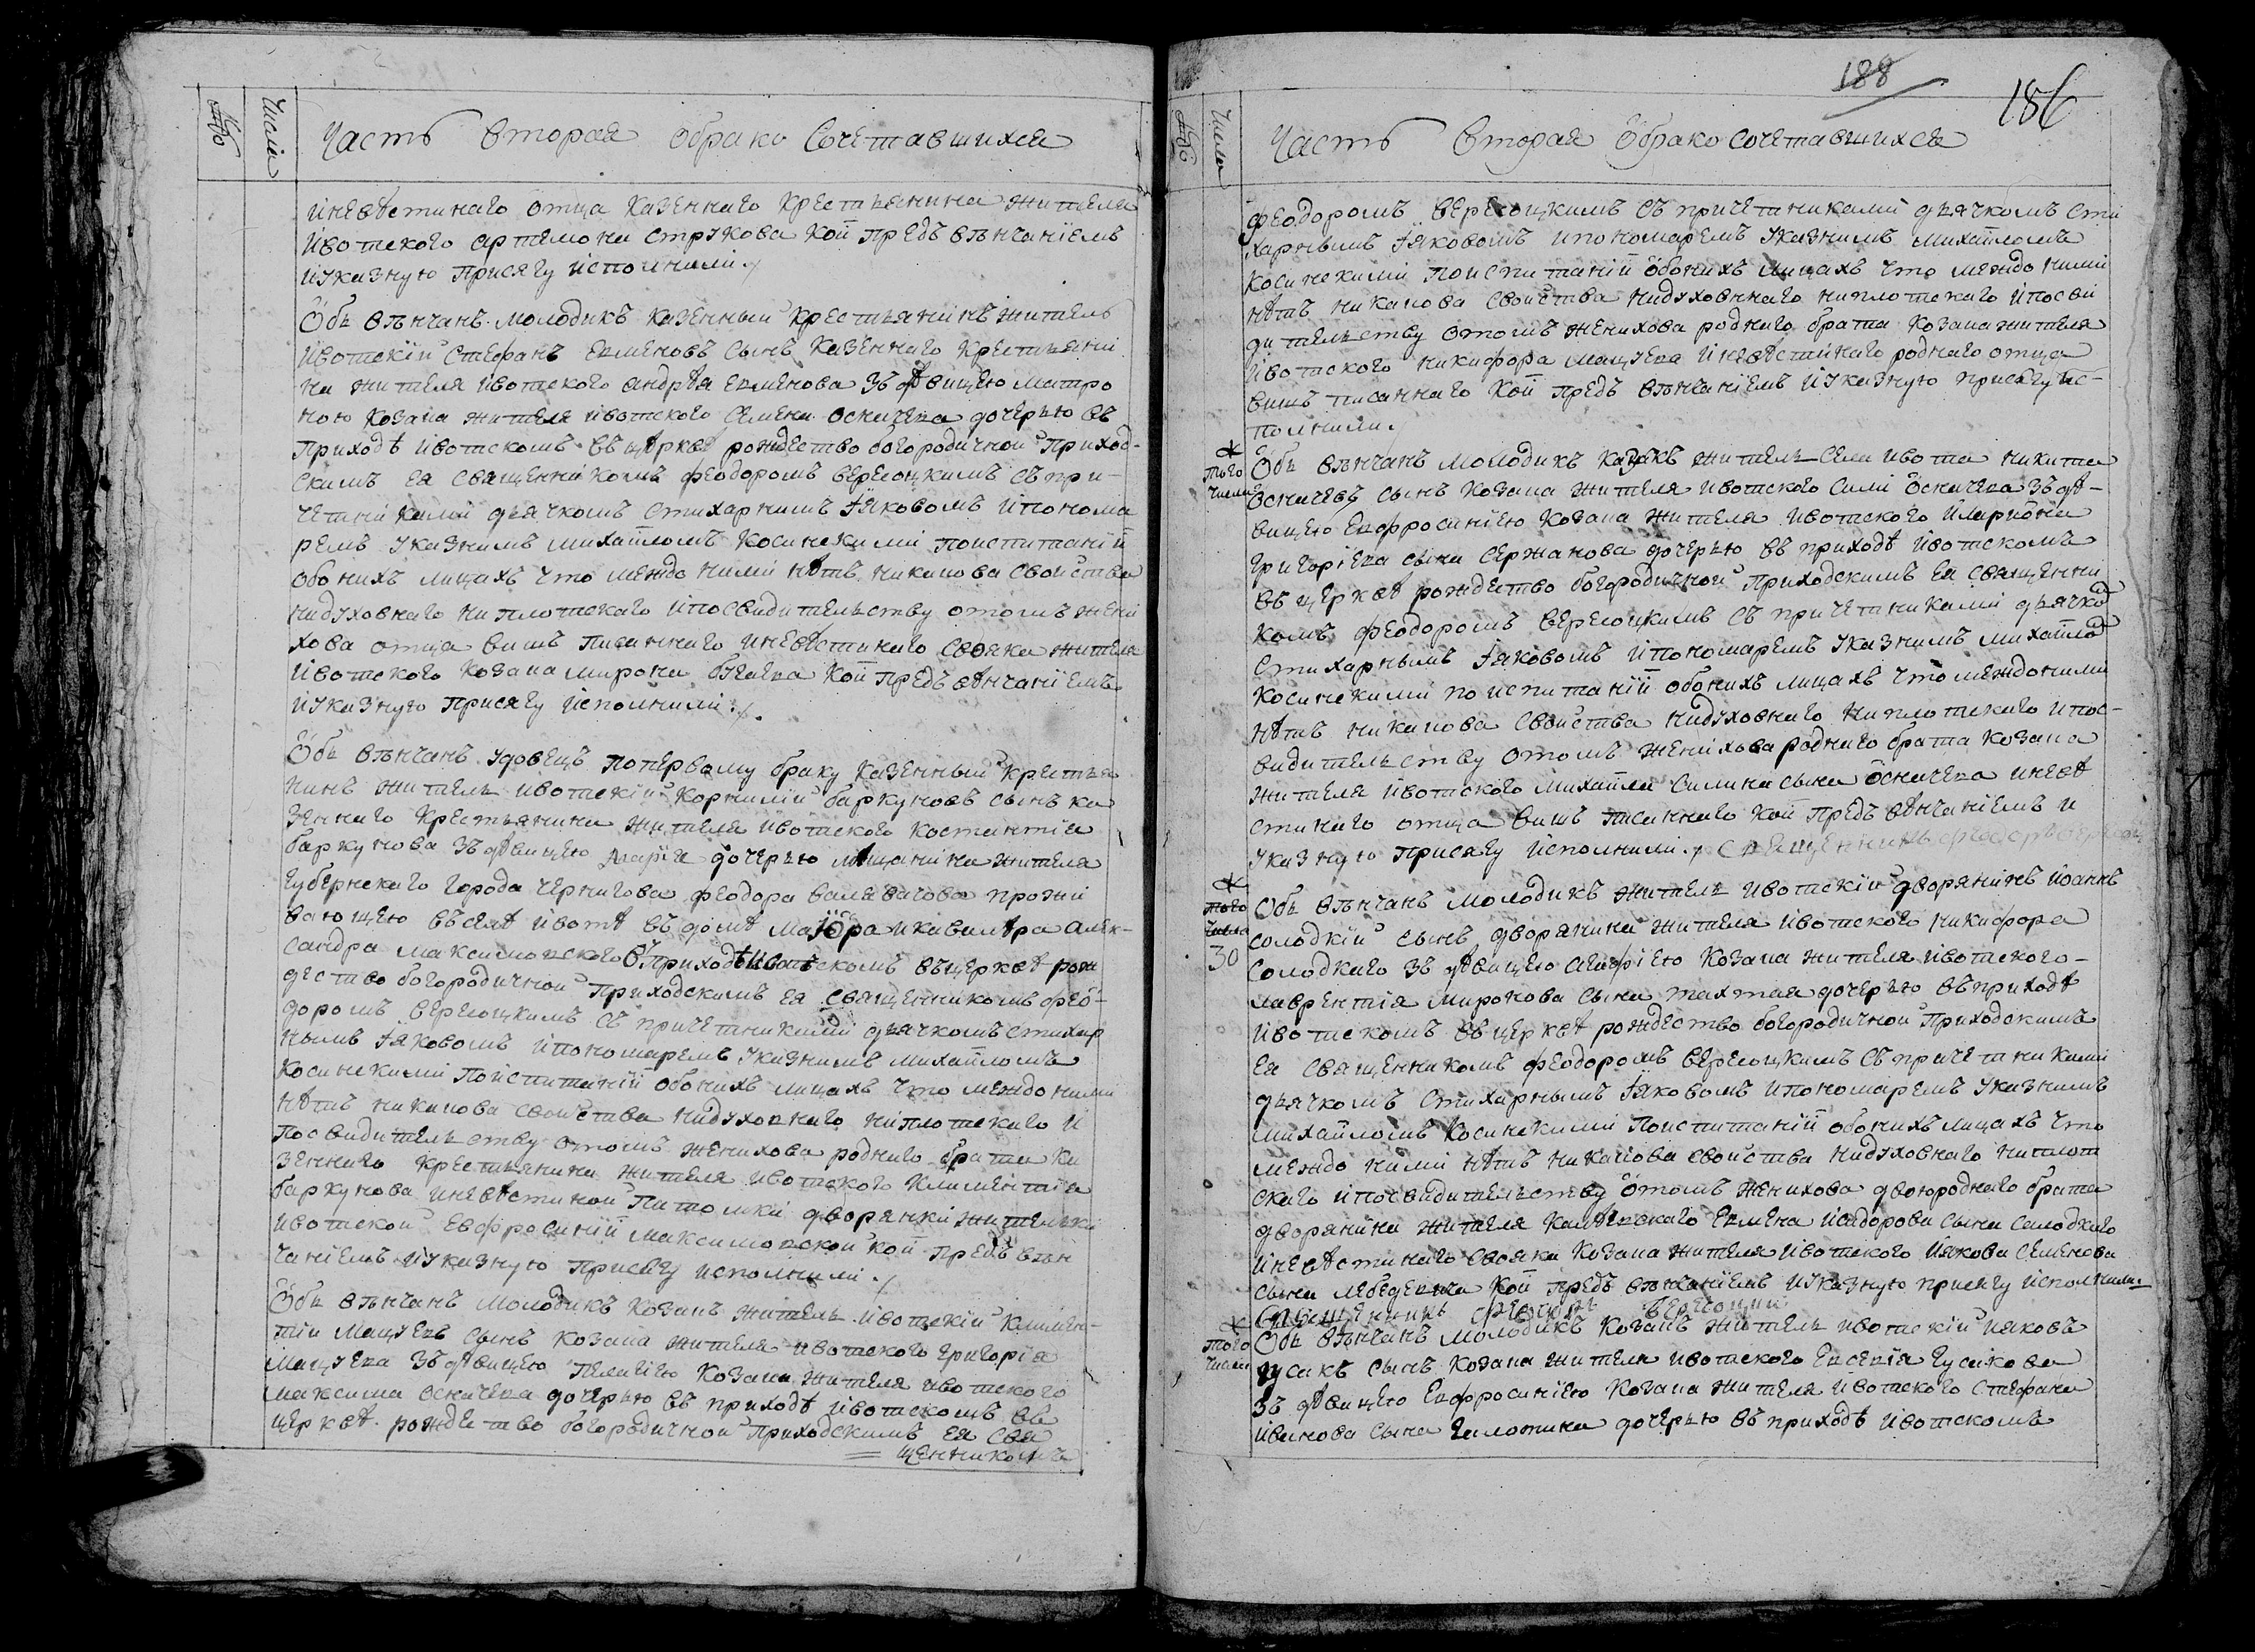 Число
Часть вторая обрако сочетавшихся
иневѣстинаго отца казенного крестьянина жителя
ивотского артемона стрꙋкова кой предъ вѣнчаніемъ
иꙋказную присягу исполнили
Обѣ вѣнчанъ молодикъ казенный крестьянинъ житель
ивотскій стефанъ евменовъ сынъ казенного крестьяни
на жителя ивотского андрѣя евменова зъ дѣвицею матро
ною козака жителя ивотского семена осничева дочерью въ
приходѣ ивотскомъ въ церквѣ рождество богородичной приход-
скимъ ея священникомъ феодоромъ верегоцкимъ съ при-
четниками дьячкомъ стихарнимъ іяковомъ и понома
ремъ ꙋказнимъ михайломъ косинскими поиспитаній
обоихъ лицахъ что междо ними нѣтъ никакова свойства
нидꙋховнаго ниплотскаго и посвидителству отомъ жени
хова отца вишъ писанного иневѣстинаго свояка жителя
ивотского козака мирона кой предъ вѣнчаніемъ
иꙋказную присягу исполнили
Обѣ вѣнчанъ ꙋдовецъ поперваму браку казенный крестья
нинъ житель ивотскій корнилій баркуновъ сынъ ка
зенного крестьянина жителя ивотского костантія
баркунова зъ дѣвицею маріе дочерью мѣщанина жителя
губернского города чернигова феодора прожи
вающею въ селѣ ивотѣ въ домѣ маіора и кавалѣра алек-
сандра максимовского въ приходѣ ивотскомъ въ церквѣ рож
дество богородичной приходскимъ ея священникомъ фео-
доромъ верегоцкимъ съ причетниками дьячкомъ стихар
нымъ іяковомъ и пономаремъ ꙋказнимъ михайломъ
косинскими поиспитаній обоихъ лицахъ что междо ними
нѣтъ никакова свойства нидꙋховнаго ниплотскаго и
посвидителству отомъ женихова роднаго брата ка
зенного крестьянина жителя ивотского климентія
баркунова иневѣстиной питомки дворянки жителки
ивотской евфросиній максимовской кой предъ вѣн
чаніемъ иꙋказную присягу исполнили
Обѣ вѣнчанъ молодикъ козакъ житель ивотскій климен-
тій мацꙋевъ сынъ козака жителя ивотского григорія
мацꙋева зъ дѣвицею пелагіею козака жителя ивотского
максима осничева дочерью въ приходѣ ивотскомъ въ
церквѣ рождество богородичной приходскимъ ея свя
щенникомъ
188
186
Число
Часть вторая обрако сочетавшихся
феодоромъ верегоцкимъ съ причетниками дьячкомъ сти
харнымъ іяковомъ и пономаремъ ꙋказнимъ михайломъ
косинскими поиспитаній обоихъ лицахъ что междо ними
нѣтъ никакова свойства нидꙋховнаго ниплотскаго и посви
дителству отомъ женихова роднаго брата козака жителя
ивотского никифора мацꙋева иневѣстинаго роднаго отца
вишъ писанного кой предъ вѣнчаніемъ иꙋказную присягу ис-
полнили
того числа
Обѣ вѣнчанъ молодикъ казакъ житель села ивота никита
осничевъ сынъ козака жителя ивотского сили осничева зъ дѣ-
вицею евфросиніею козака жителя ивотского иларіона
григоріева сына сержанова дочерью въ приходѣ ивотскомъ
въ церквѣ рождество богородичной приходскимъ ея священни
комъ феодоромъ верегоцкимъ съ причетниками дьячко
стихарнымъ іяковомъ и пономаремъ ꙋказнимъ михайло
косинскими поиспитаній обоихъ лицахъ что междо ними
нѣтъ никакова свойства нидꙋховнаго ниплотскаго и пос-
видителству отомъ женихова роднаго брата козака
жителя ивотского михайла силина сына осничева иневѣ
стинаго отца вишъ писанного кой предъ вѣнчаніемъ и
ꙋказную присягу исполнили священникъ феодоръ
того числа
30
Обѣ вѣнчанъ молодикъ житель ивотскій дворянинъ иоаннъ
солодкій сынъ дворянина жителя ивотского никифора
солодкаго зъ дѣвицею агафіею козака жителя ивотского
лаврентія миронова сына тахтая дочерью въ приходѣ
ивотскомъ въ церквѣ рождество богородичной приходскимъ
ея священникомъ феодоромъ верегоцкимъ съ причетниками
дьячкомъ стихарнымъ іяковомъ и пономаремъ ꙋказнимъ
михайломъ косинскими поиспитаній обоихъ лицахъ что
междо ними нѣтъ никакова свойства нидꙋховнаго ниплот
скаго и посвидителству отомъ женихова двоюроднаго брата
дворянина жителя евмена исидорова сына солодкаго
иневѣстинаго свояка козака жителя ивотского иякова семенова
сына лебедевича кой предъ вѣнчаніемъ иꙋказную присягу исполнили
священникъ феодоръ верегоцкий
того числа
Обѣ вѣнчанъ молодикъ козакъ житель ивотскій ияковъ
гусакъ сынъ козака жителя ивотского евсевія гусакова
зъ дѣвицею евфросиніею козака жителя ивотского стефана
иванова сына дочерью въ приходѣ ивотскомъ